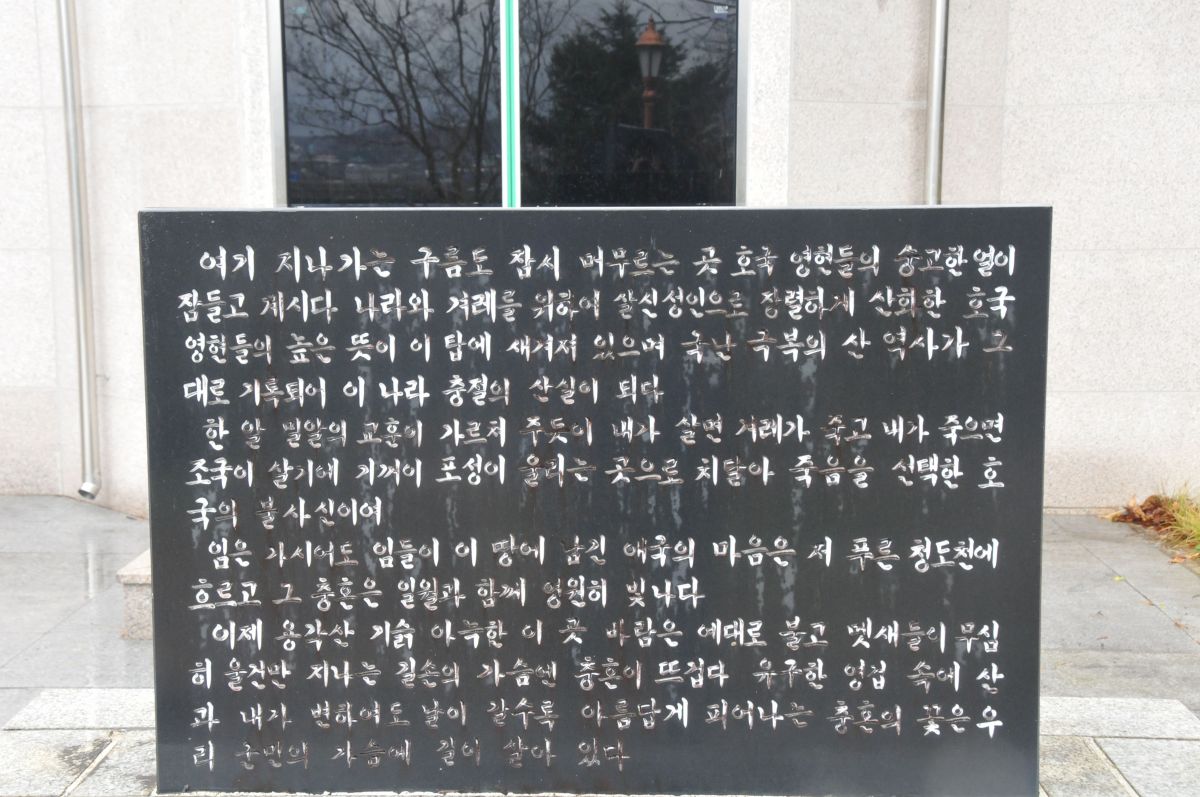 여기 지나가는 구름도 잠시 머무르는 곳 호국 영현들의 숭고한 얼이
잠들고 계시다 나라와 겨레를 위하여 살신성인으로 장렬하게 산화한 호국
영현들의 높은 뜻이 이 탑에 새겨져 있으며 국난 극복의 산 역사가 그
대로 기록되어 이 나라 충절의 산실이 되다
한 알 밀알의 교훈이 가르쳐 주듯이 내가 살면 겨레가 죽고 내가 죽으면
조국이 살기에 기꺼이 포성이 울리는 곳으로 치달아 죽음을 선택한 호
국의 불사신이여
임은 가시어도 임들이 이 땅에 남긴 애국의 마음은 저 푸른 청도천에
흐르고 그 충혼은 일월과 함께 영원히 빛나다
이제 용각산 기슭 아늑한 이 곳 바람은 예대로 불고 멧새들이 무심
히 울건만 지나는 길손의 가슴엔 충혼이 뜨겁다 유구한 영겁 속에 산
과 내가 변하여도 날이 갈수록 아름답게 피어나는 충혼의 꽃은 우
리 군민의 가슴에 길이 살아 있다